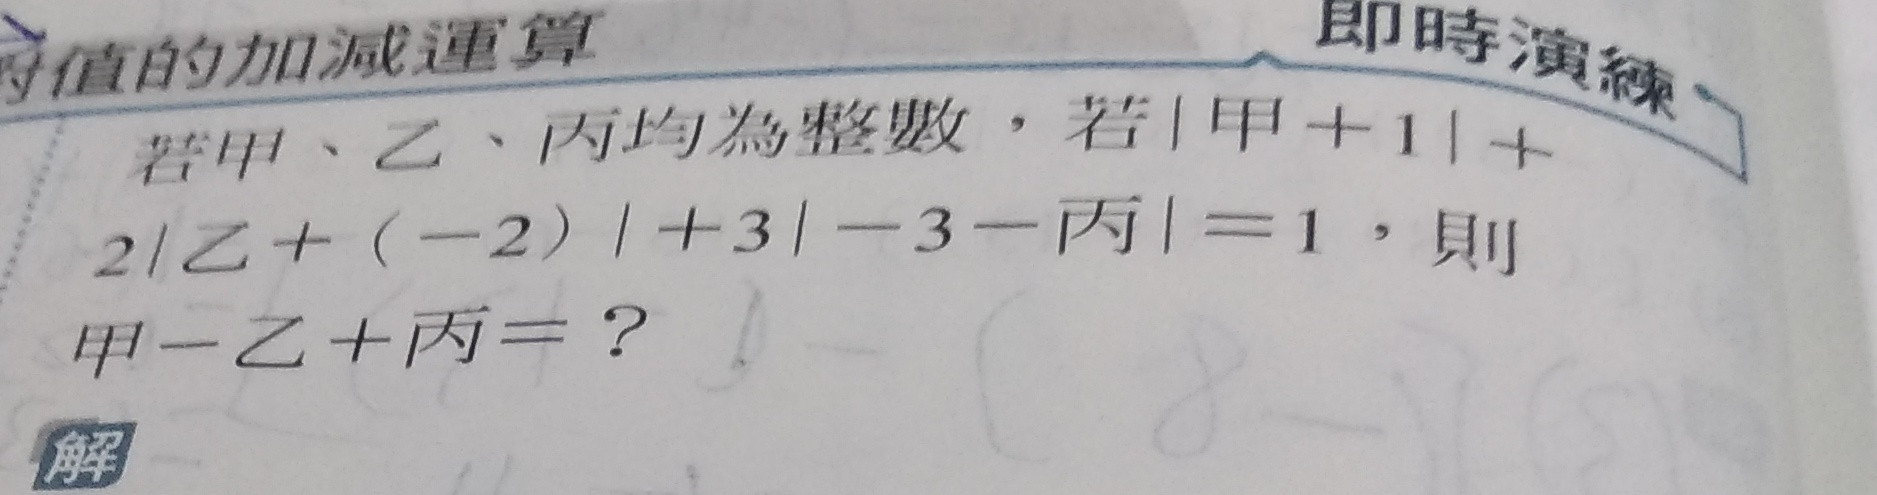 值的加減運算
即時演練
若甲、乙、丙均為整數，若|甲＋1|＋
2|乙＋（－2）|＋3|－3－丙|＝1，則
甲－乙＋丙＝？
解